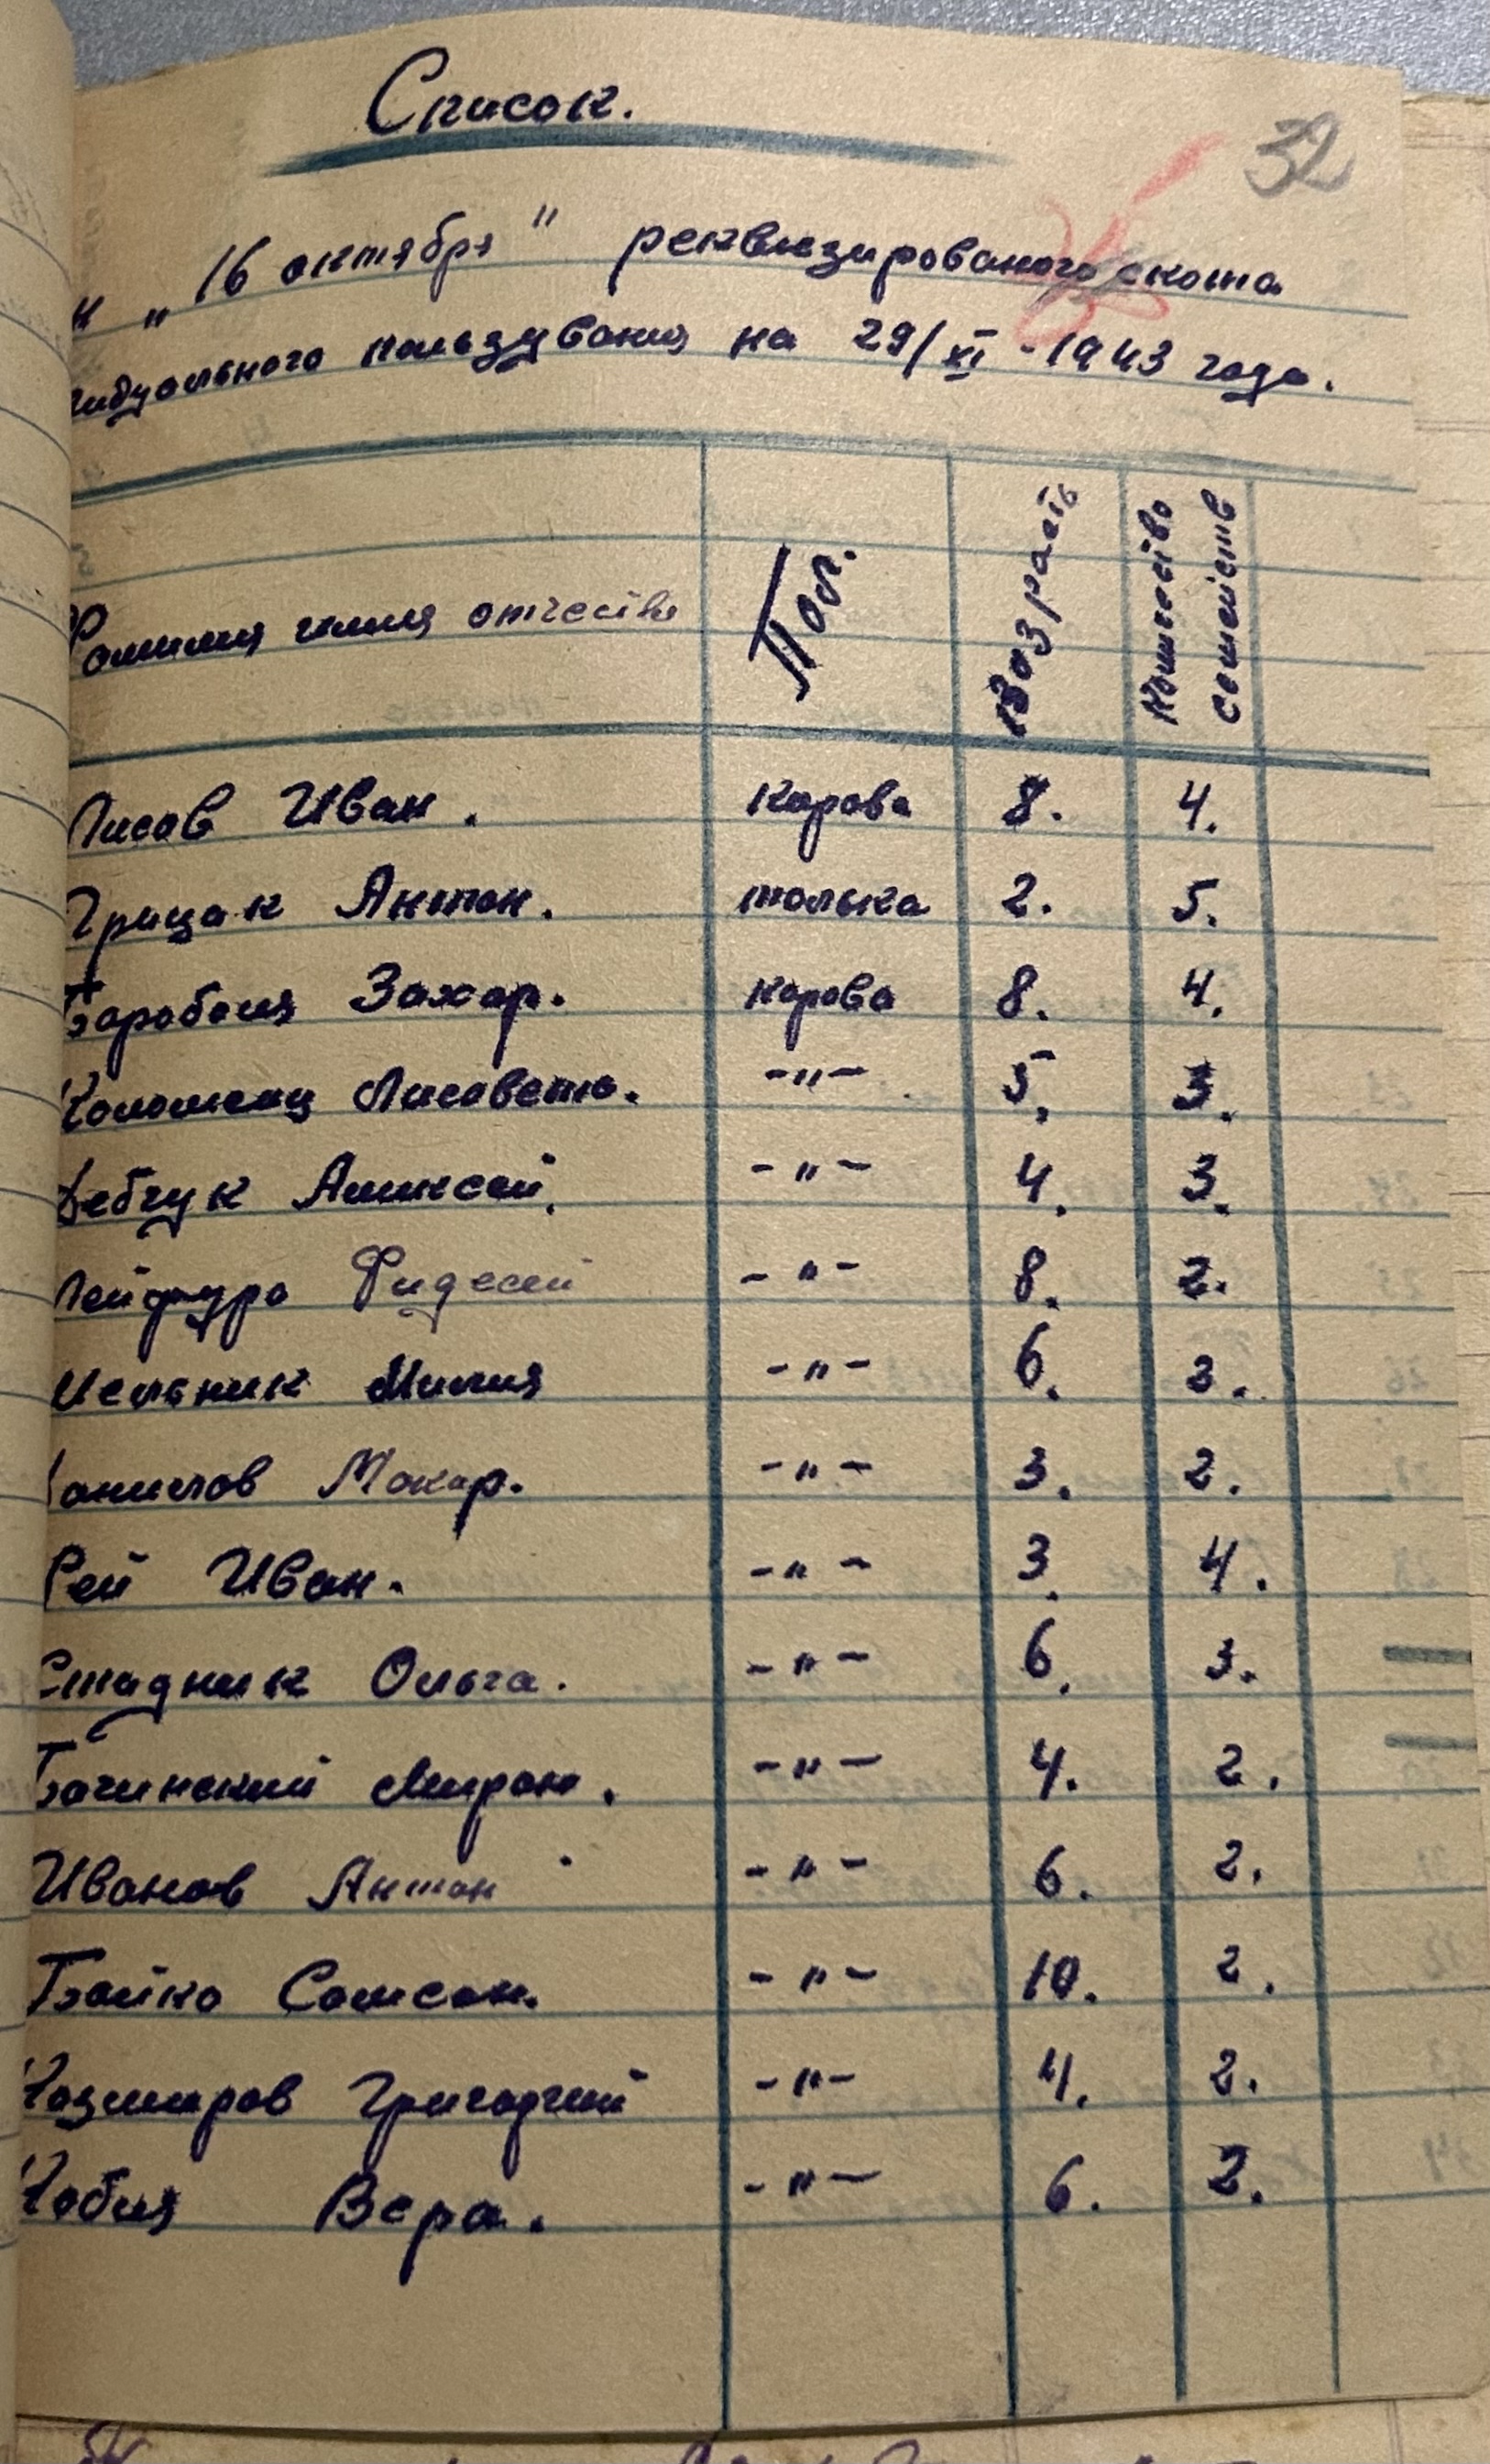 Список.
32
" 16 октября " реквизированого скота
видуального пользувания на 29/XI - 1943 года.
Фамилия имия отчества
Пол.
Возрасть
Количество
семейств
Лисов Иван. корова 8. 4.
Грицак Антон. толька 2. 5.
Бараболя Захар. корова 8. 4.
Коломеец Лисавета. -"- 5. 3.
Дебчук Аликсей. -"- 4. 3.
Лейфура Фидесей -"- 8. 2.
Мельник Милия -"- 6. 2.
Данилов Макар. -"- 3. 2.
Рей Иван. -"- 3. 4.
Стадник Ольга. -"- 6. 3.
Бачинский Мирон. -"- 4. 2.
Иванов Антон -"- 6. 2.
Бойко Самсон. -"- 10. 2.
Казмиров Григорий -"- 4. 2.
Кобия Вера. -"- 6. 2.